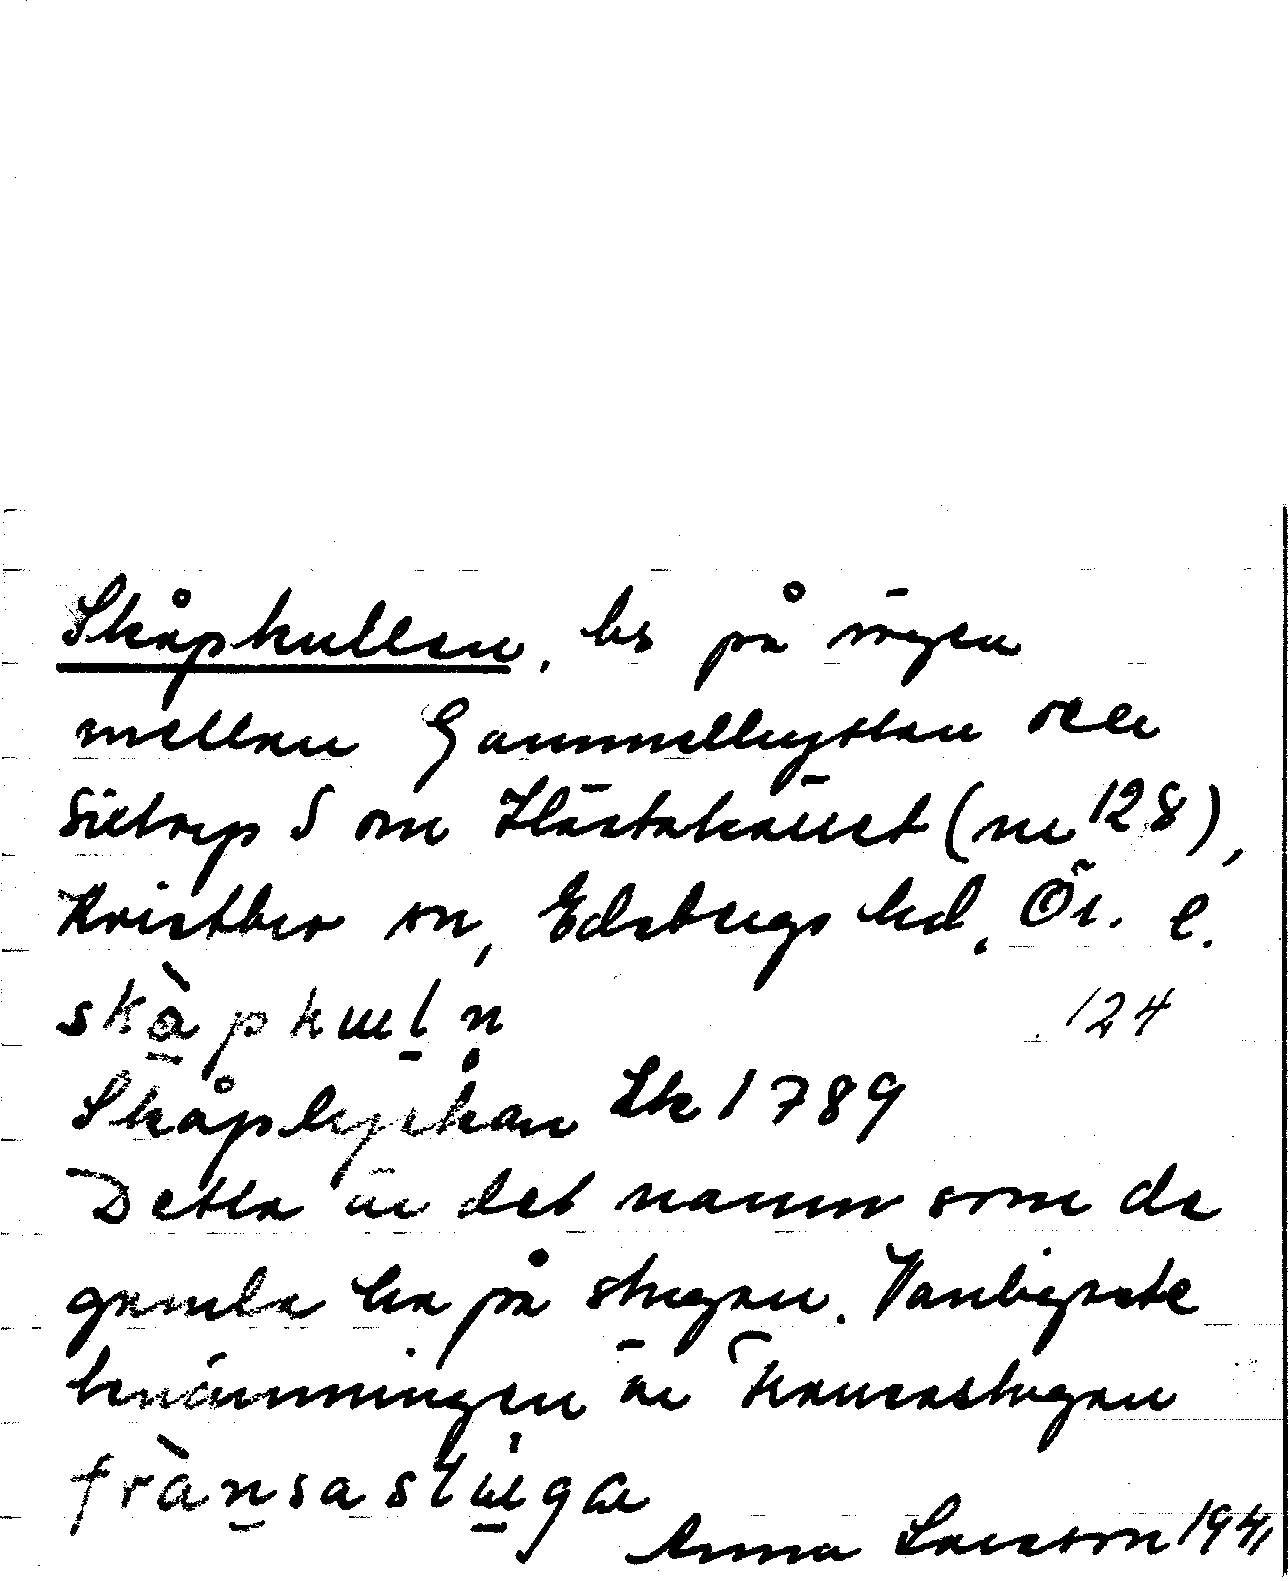 Skåphullen, bs på vägen
mellan Gammelhyttan och
Siltorp S om Hästabäcket (nr 128),
Kvistbro sn, Edsbergs hd, Ör. l.
skàphuln 124
Skåplyckan Lk 1789
Detta är det namn som de
gamla ha på stugan. Vanligaste
benämningen är Fransastugan
frànsastuga
Anna Larsson 1941